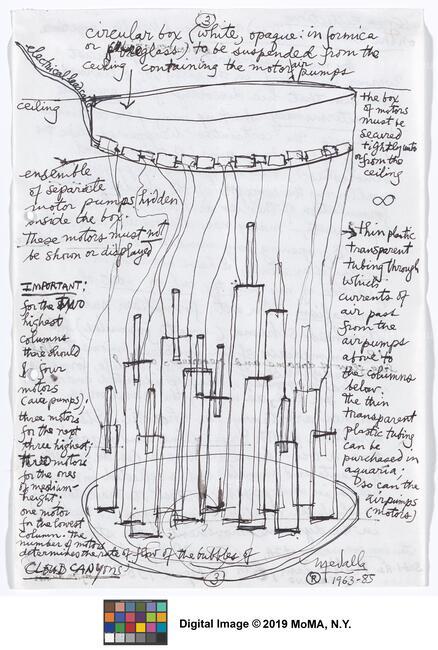 3
circular box (white, opaque: in formica
or fibreglass) to be suspended from the
ceiling containing the motor air pumps
electrical leads
ceiling
the box
of motors
must be
secured
tightly
from the
ceiling
∞
ensemble
of separate
motor pumps hidden
inside the box.
These motors must not
be shown or displayed
thin plastic
transparent
tubing through
which
currents of
air past
from the
airpumps
above to
the columns
below.
the thin
transparent
plastic tubing
can be
purchased in
aquaria.
so can the
airpumps
(motors)
IMPORTANT:
for the TWO
highest
columns
there should
be four
motors
(air pumps);
three motors
for the next
three highest;
motors
for the ones
of medium-
height;
one motor
for the lowest
column. the
number of motors
determines the rate of flow of the bubbles of
CLOUD CANYONS
3
Medalla
R 1963-85
Digital Image © 2019 MoMA, N.Y.